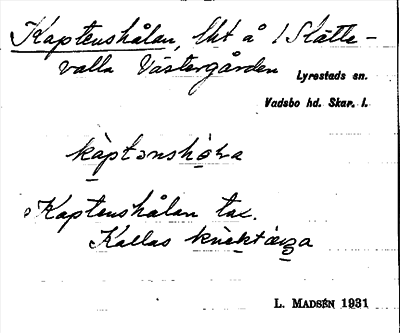 Kaptenshålan, lht å 1 Slätte-
valla Västergården Lyrestads sn.
Vadsbo hd. Skar. l.
kaptənshɷLa
Kaptenshålan tax.
Kallas
L. MADSÉN 1931